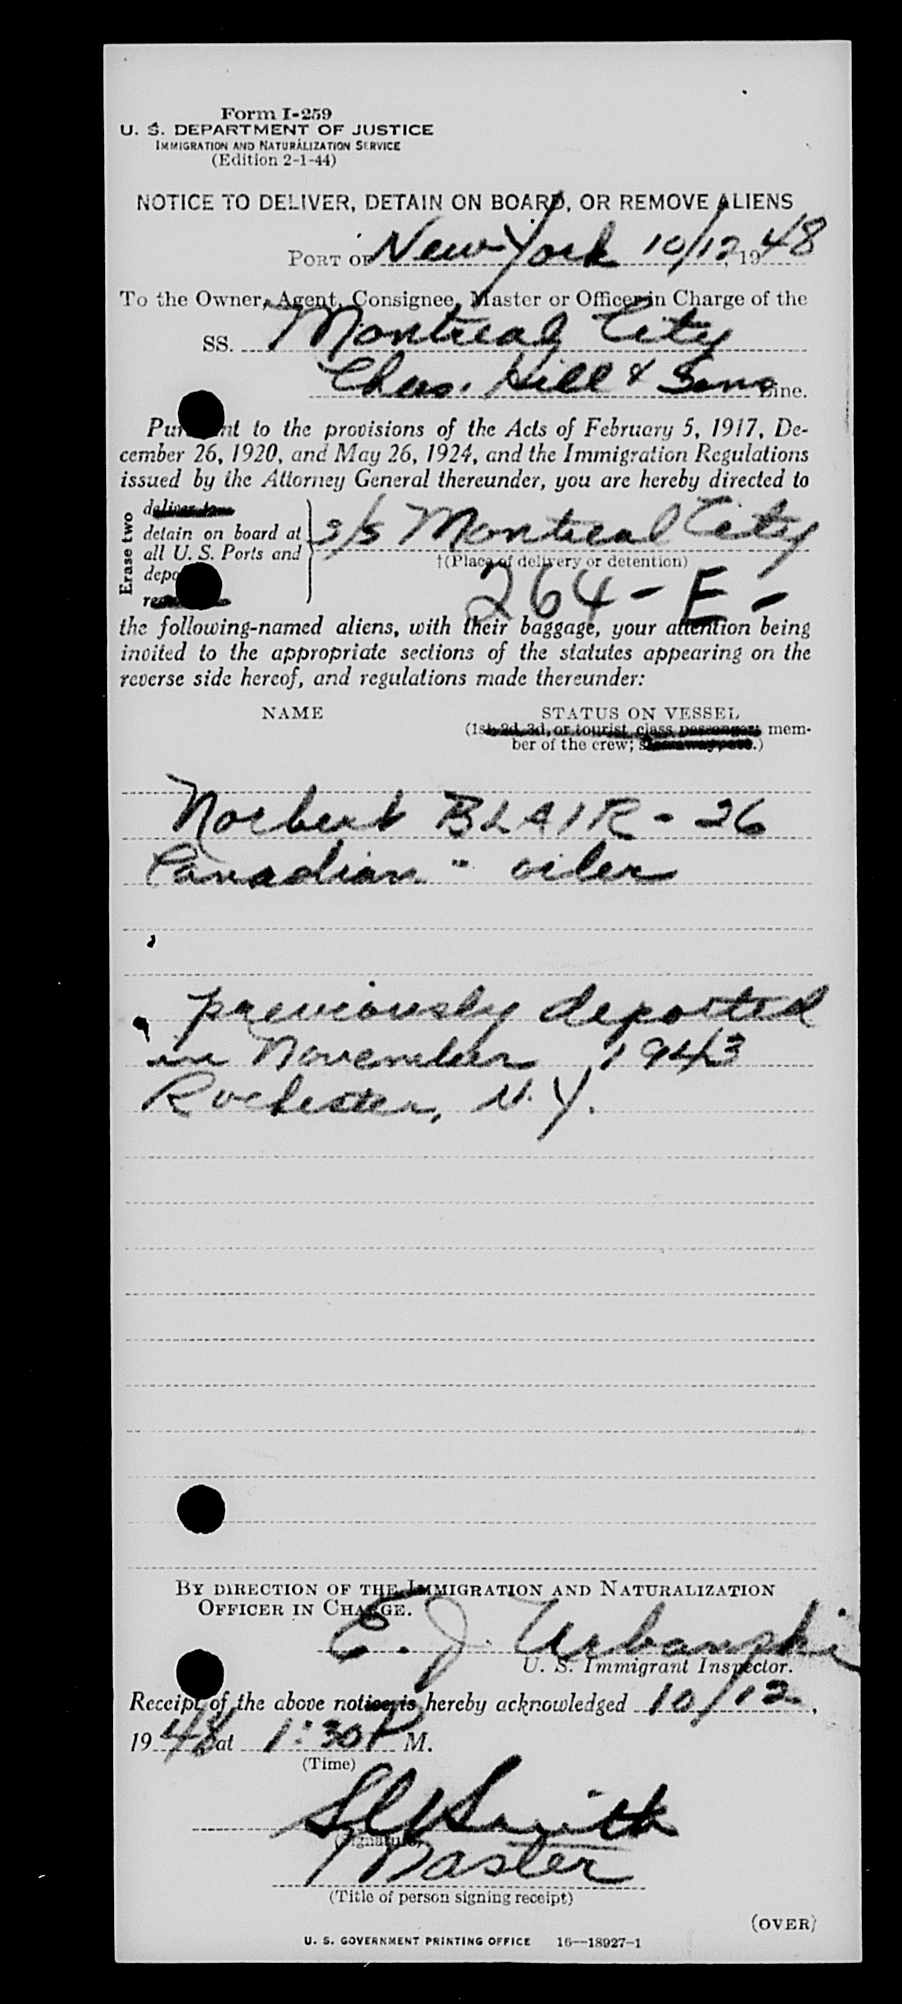 Form I-259
U. S. DEPARTMENT OF JUSTICE
IMMIGRATION AND NATURALIZATION SERVICE
(Edition 2-1-44)
NOTICE TO DELIVER, DETAIN ON BOARD, OR REMOVE ALIENS
PORT OF New York 10/12, 1948
To the Owner, Agent, Consignee, Master or Officer in Charge of the
SS. Montreal City
Chas. Hill & Sons Line.
Pursuant to the provisions of the Acts of February 5, 1917, De-
cember 26, 1920, and May 26, 1924, and the Immigration Regulations
issued by the Attorney General thereunder, you are hereby directed to
Erase two
deliver to
detain on board at
all U. S. Ports and
s/s Montreal City
†(Place of delivery or detention)
264-E-
the following-named aliens, with their baggage, your attention being
invited to the appropriate sections of the statutes appearing on the
reverse side hereof, and regulations made thereunder:
NAME STATUS ON VESSEL
(1st, 2d, 3d, or tourist class passenger; mem-
ber of the crew; stowaway, etc.)
Norbert BLAIR - 26
Canadian - oiler
previously deported
in November 1943
Rochester, N.Y.
BY DIRECTION OF THE IMMIGRATION AND NATURALIZATION
OFFICER IN CHARGE.
E. J. Urbanski
U. S. Immigrant Inspector.
Receipt of the above notice is hereby acknowledged 10/12,
1948 at 1:30 P M.
(Time)
Smith
(Signature)
Master
(Title of person signing receipt)
(OVER)
U. S. GOVERNMENT PRINTING OFFICE 16—18927-1